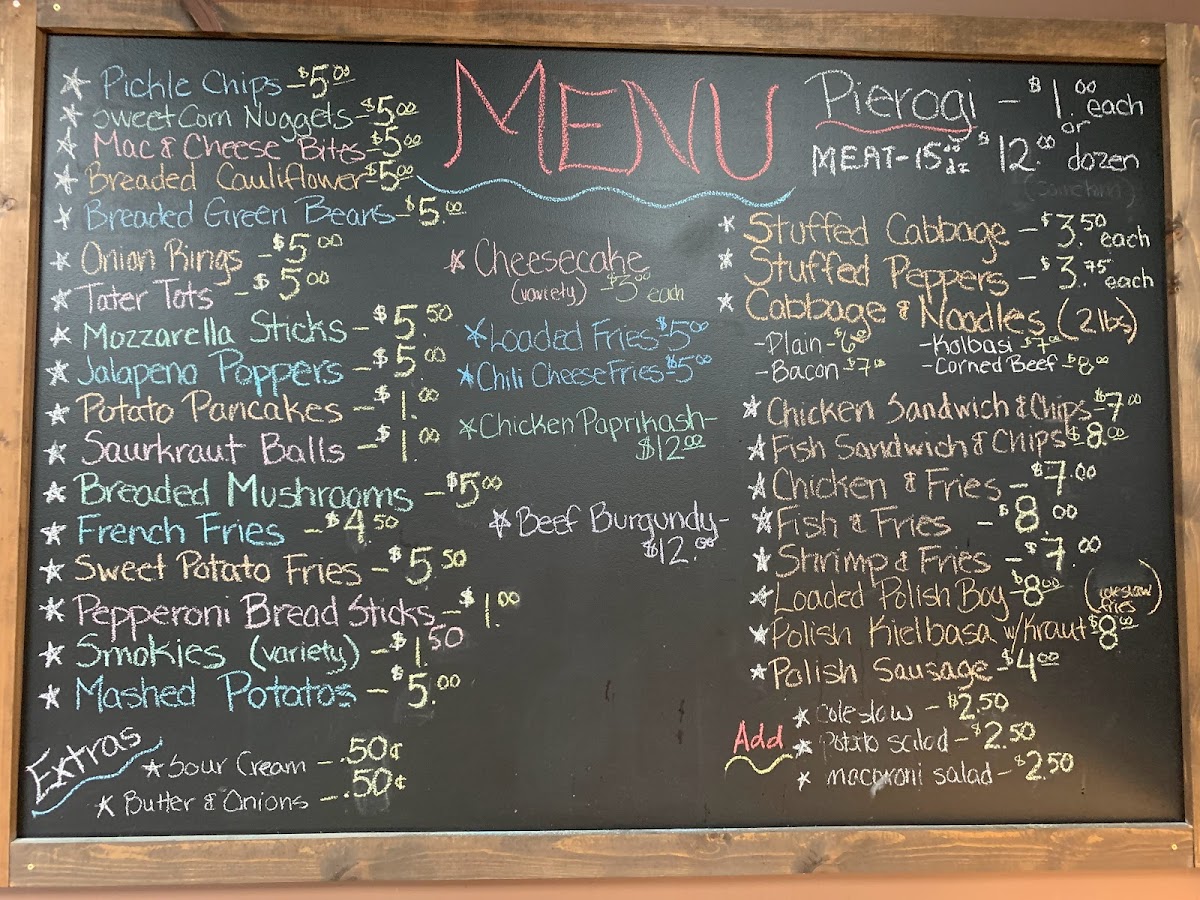 MENU
Pickle Chips - $5.00
Sweet Corn Nuggets - $5.00
Mac & Cheese Bites - $5.00
Breaded Cauliflower - $5.00
Breaded Green Beans - $5.00
Onion Rings - $5.00
Tater Tots - $5.00
Mozzarella Sticks - $5.50
Jalapeno Poppers - $5.00
Potato Pancakes - $1.00
Saurkraut Balls - $1.00
Breaded Mushrooms - $5.00
French Fries - $4.50
Sweet Potato Fries - $5.50
Pepperoni Bread Sticks - $1.00
Smokies (variety) - $1.50
Mashed Potatos - $5.00
Extras
Sour Cream - .50¢
Butter & Onions - .50¢
Cheesecake
(variety) $3.00 each
Loaded Fries $5.00
Chili Cheese Fries - $5.00
Chicken Paprikash -
$12.00
Beef Burgundy -
$12.00
Pierogi - $1.00 each
or
MEAT - 15.00 dz $12.00 dozen
Stuffed Cabbage - $3.50 each
Stuffed Peppers - $3.75 each
Cabbage & Noodles (2 lbs)
- Plain - $6.00 - Kolbasi $7.00
- Bacon - $7.00 - Corned Beef - $8.00
Chicken Sandwich & Chips - $7.00
Fish Sandwich & Chips $8.00
Chicken & Fries - $7.00
Fish & Fries - $8.00
Shrimp & Fries - $7.00
Loaded Polish Boy - $8.00 (coleslaw
fries)
Polish Kielbasa w/Kraut $8.00
Polish Sausage - $4.00
Add
coleslaw - $2.50
Potato salad - $2.50
macaroni salad - $2.50